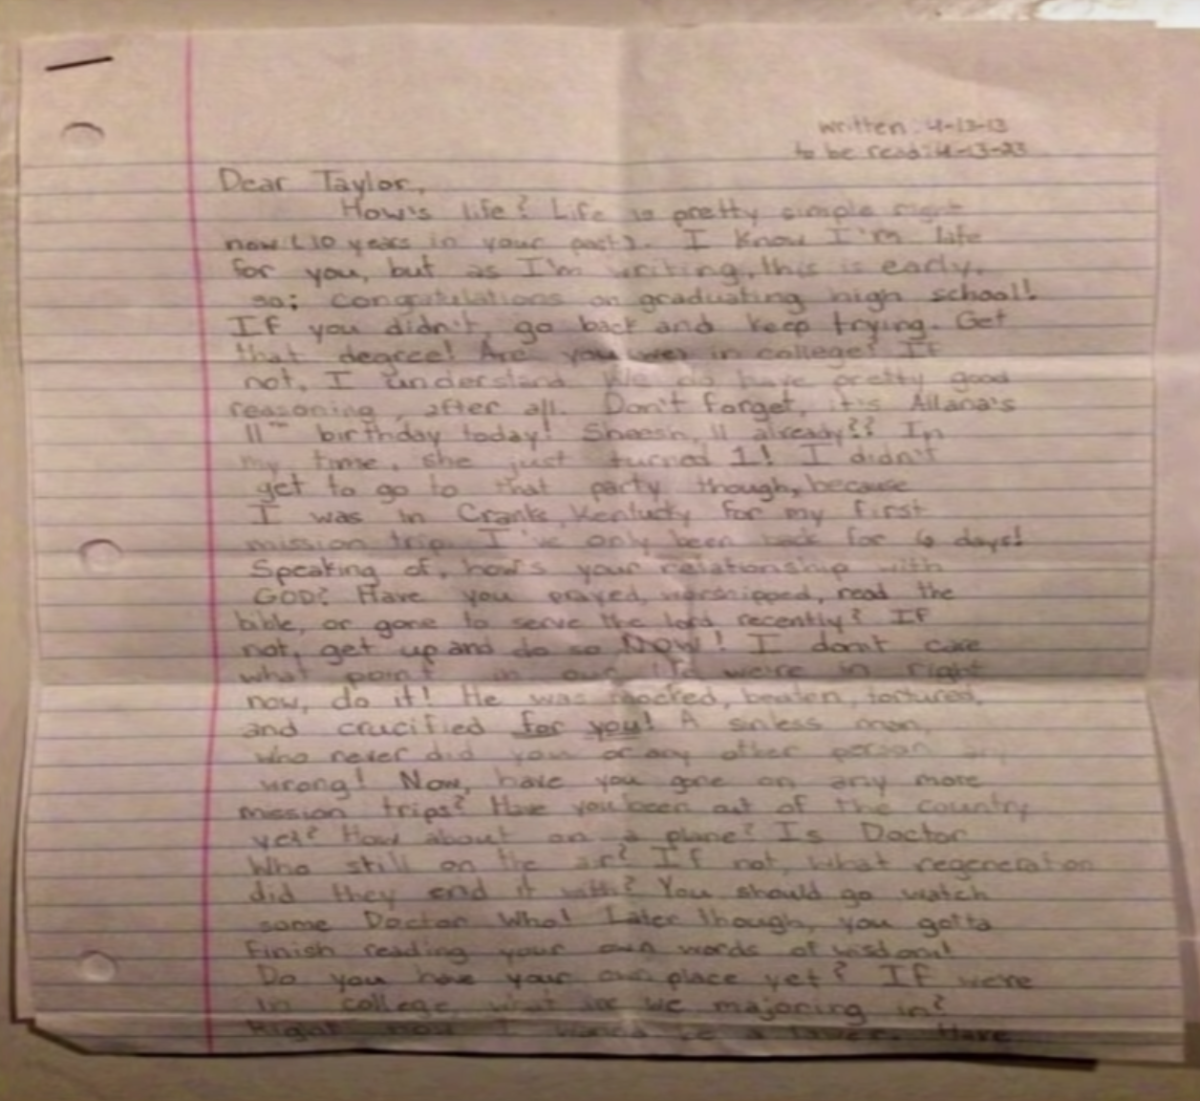 written: 4-13-13
to be read: 4-13-23
Dear Taylor,
How's life? Life is pretty simple right
now (10 years in your past). I know I'm late
for you, but as I'm writing, this is early,
so; congratulations on graduating high school!
If you didn't, go back and keep trying. Get
that degree! Are you in college? If
not, I understand. We do have pretty good
reasoning, after all. Don't forget, it's Allana's
11th birthday today! Sheesh, 11 already?? In
my time, she just turned 1! I didn't
get to go to that party though, because
I was in Cranks, Kentucky for my first
mission trip. I've only been back for 6 days!
Speaking of, how's your relationship with
GOD? Have you prayed, worshipped, read the
bible, or gone to serve the lord recently? If
not, get up and do so NOW! I don't care
what point in our life we're in right
now, do it! He was mocked, beaten, tortured,
and crucified for you! A sinless man,
who never did you or any other person any
wrong! Now, have you gone on any more
mission trips? Have you been out of the country
yet? How about on a plane? Is Doctor
Who still on the air? If not, what regeneration
did they end it with? You should go watch
some Doctor Who! Later though, you gotta
finish reading your own words of wisdom!
Do you have your own place yet? If we're
in college, what are we majoring in?
Right now I would be a lawer. Have